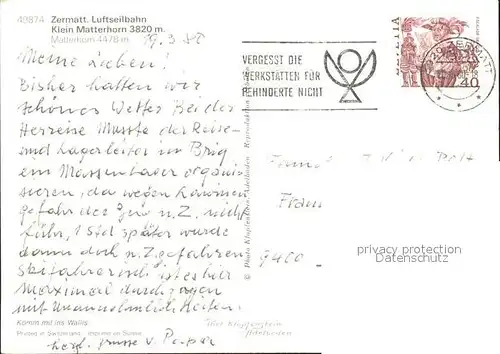 49874 Zermatt. Luftseilbahn
Klein Matterhorn 3820 m.
Matterhorn 4478 m.
19.3.88
Meine Lieben!
Bisher hatten wir
schönes Wetter. Bei der
Herreise musste der Reise-
und Lagerleiter in Brig
ein Massenlager organi-
sieren, da wegen Lawinen-
gefahr der Zug n. Z. nicht
fuhr, 1 Std später wurde
dann doch n. Z. gefahren
skifahrerisch ist es hier
Maximal durchzogen
mit Unannehmlichkeiten.
Komm mit ins Wallis
Printed in Switzerland Imprimé en Suisse
herzl. Grüsse v.
VERGESST DIE
WERKSTÄTTEN FÜR
BEHINDERTE NICHT
HELVETIA
ZERMATT
40
© Photo Klopfenstein Adelboden Reproduktion
Frau
9400
privacy protection
Foto Klopfenstein
Adelboden